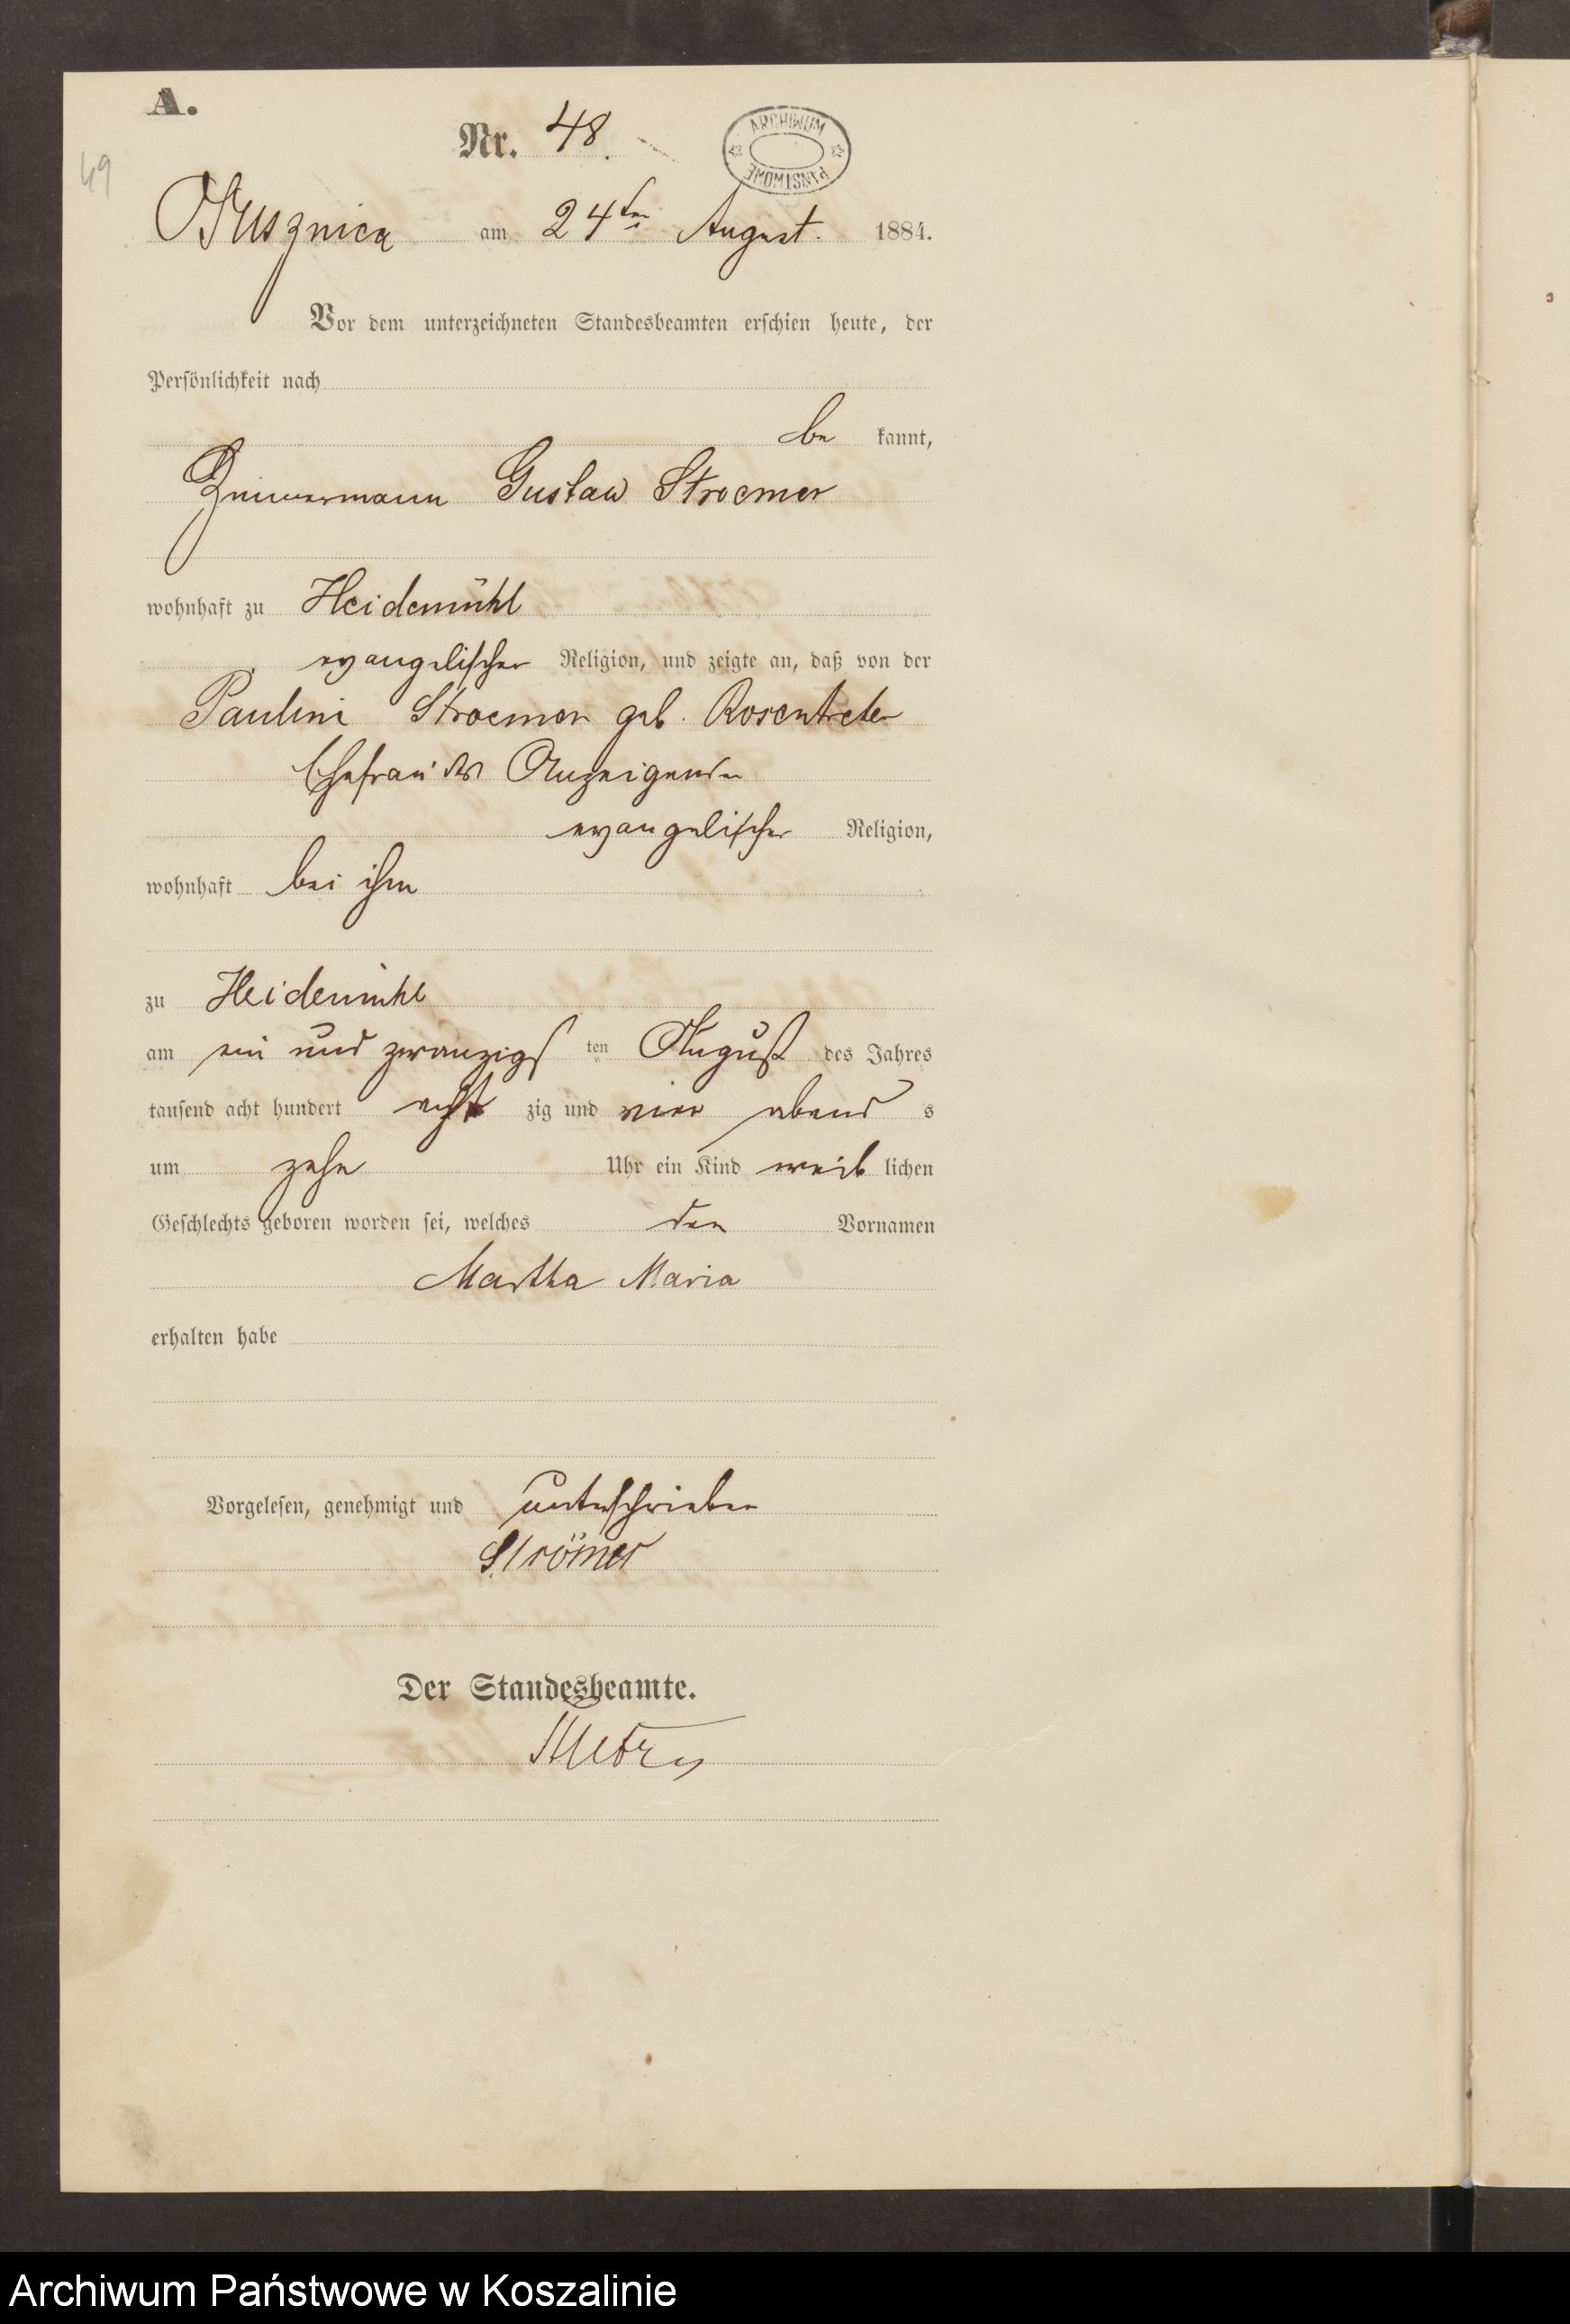 A.
Nr. 48.
ARCHIWUM PAŃSTWOWE
49
am 24ten August. 1884.
Vor dem unterzeichneten Standesbeamten erschien heute, der
Persönlichkeit nach
be kannt,
Zimmermann Gustav Stroemer
wohnhaft zu Heidemühl
evangelischer Religion, und zeigte an, daß von der
Pauline Stroemer geb. Rosentreter
Ehefrau des Anzeigenden
evangelischer Religion,
wohnhaft bei ihm
zu Heidemühl
am ein und zwanzigs ten August des Jahres
tausend acht hundert acht zig und vier abend s
um zehn Uhr ein Kind weib lichen
Geschlechts geboren worden sei, welches den Vornamen
Martha Maria
erhalten habe
Vorgelesen, genehmigt und unterschrieben
Strömer
Der Standesbeamte.
Archiwum Państwowe w Koszalinie